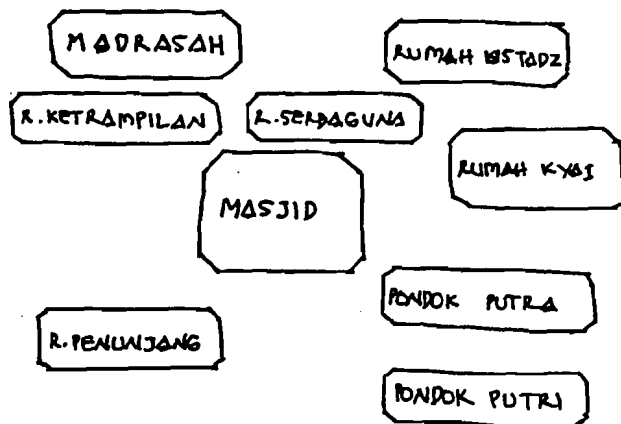 MADRASAH
RUMAH USTADZ
R.KETRAMPILAN
R.SERBAGUNA
RUMAH KYAI
MASJID
PONDOK PUTRA
R.PENUNJANG
PONDOK PUTRI